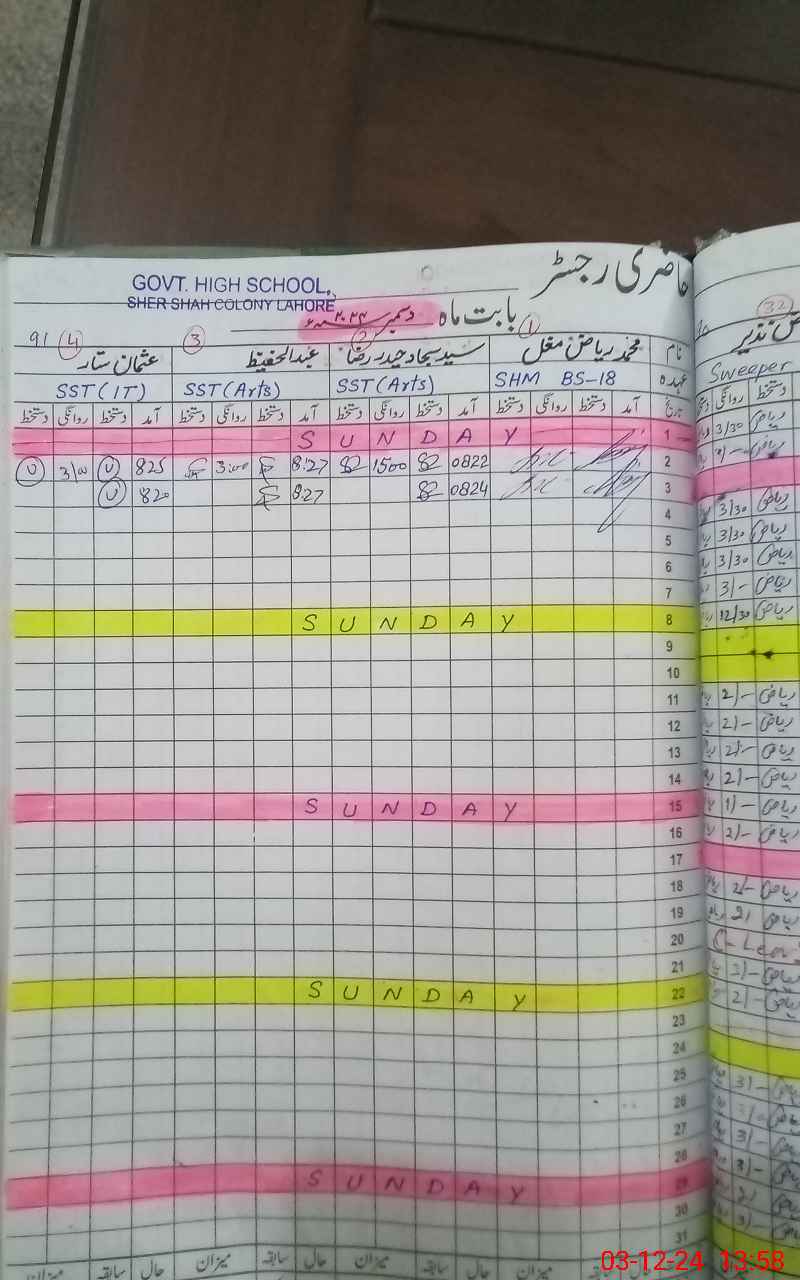 GOVT. HIGH SCHOOL,
SHER SHAH COLONY LAHORE
حاضری رجسٹر
بابت ماہ دسمبر ۲۰۲۴ء
91
نام ① محمد ریاض مغل ② سید سجاد حیدر رضا ③ عبدالحفیظ ④ عثمان ستار
عہدہ SHM BS-18 SST (Arts) SST (Arts) SST (IT)
تاریخ آمد دستخط روانگی دستخط آمد دستخط روانگی دستخط آمد دستخط روانگی دستخط آمد دستخط روانگی دستخط
1 SUNDAY
2 0822 1500 8:27 3:00 825 3/00
3 0824 8:27 820
4
5
6
7
8 SUNDAY
9
10
11
12
13
14
15 SUNDAY
16
17
18
19
20
21
22 SUNDAY
23
24
25
26
27
28
29 SUNDAY
30
31
میزان حال سابقہ میزان حال سابقہ میزان حال سابقہ میزان
32
نذیر
Sweeper
دستخط روانگی
ریاض 3/30
ریاض 3/30
ریاض 3/30
ریاض 3/30
ریاض 3/-
ریاض 12/30
ریاض 2/-
ریاض 2/-
ریاض 2/-
ریاض 2/-
ریاض 1/-
ریاض 2/-
ریاض 2/-
ریاض 2/
ریاض 2/-
ریاض 2/-
03-12-24 13:58